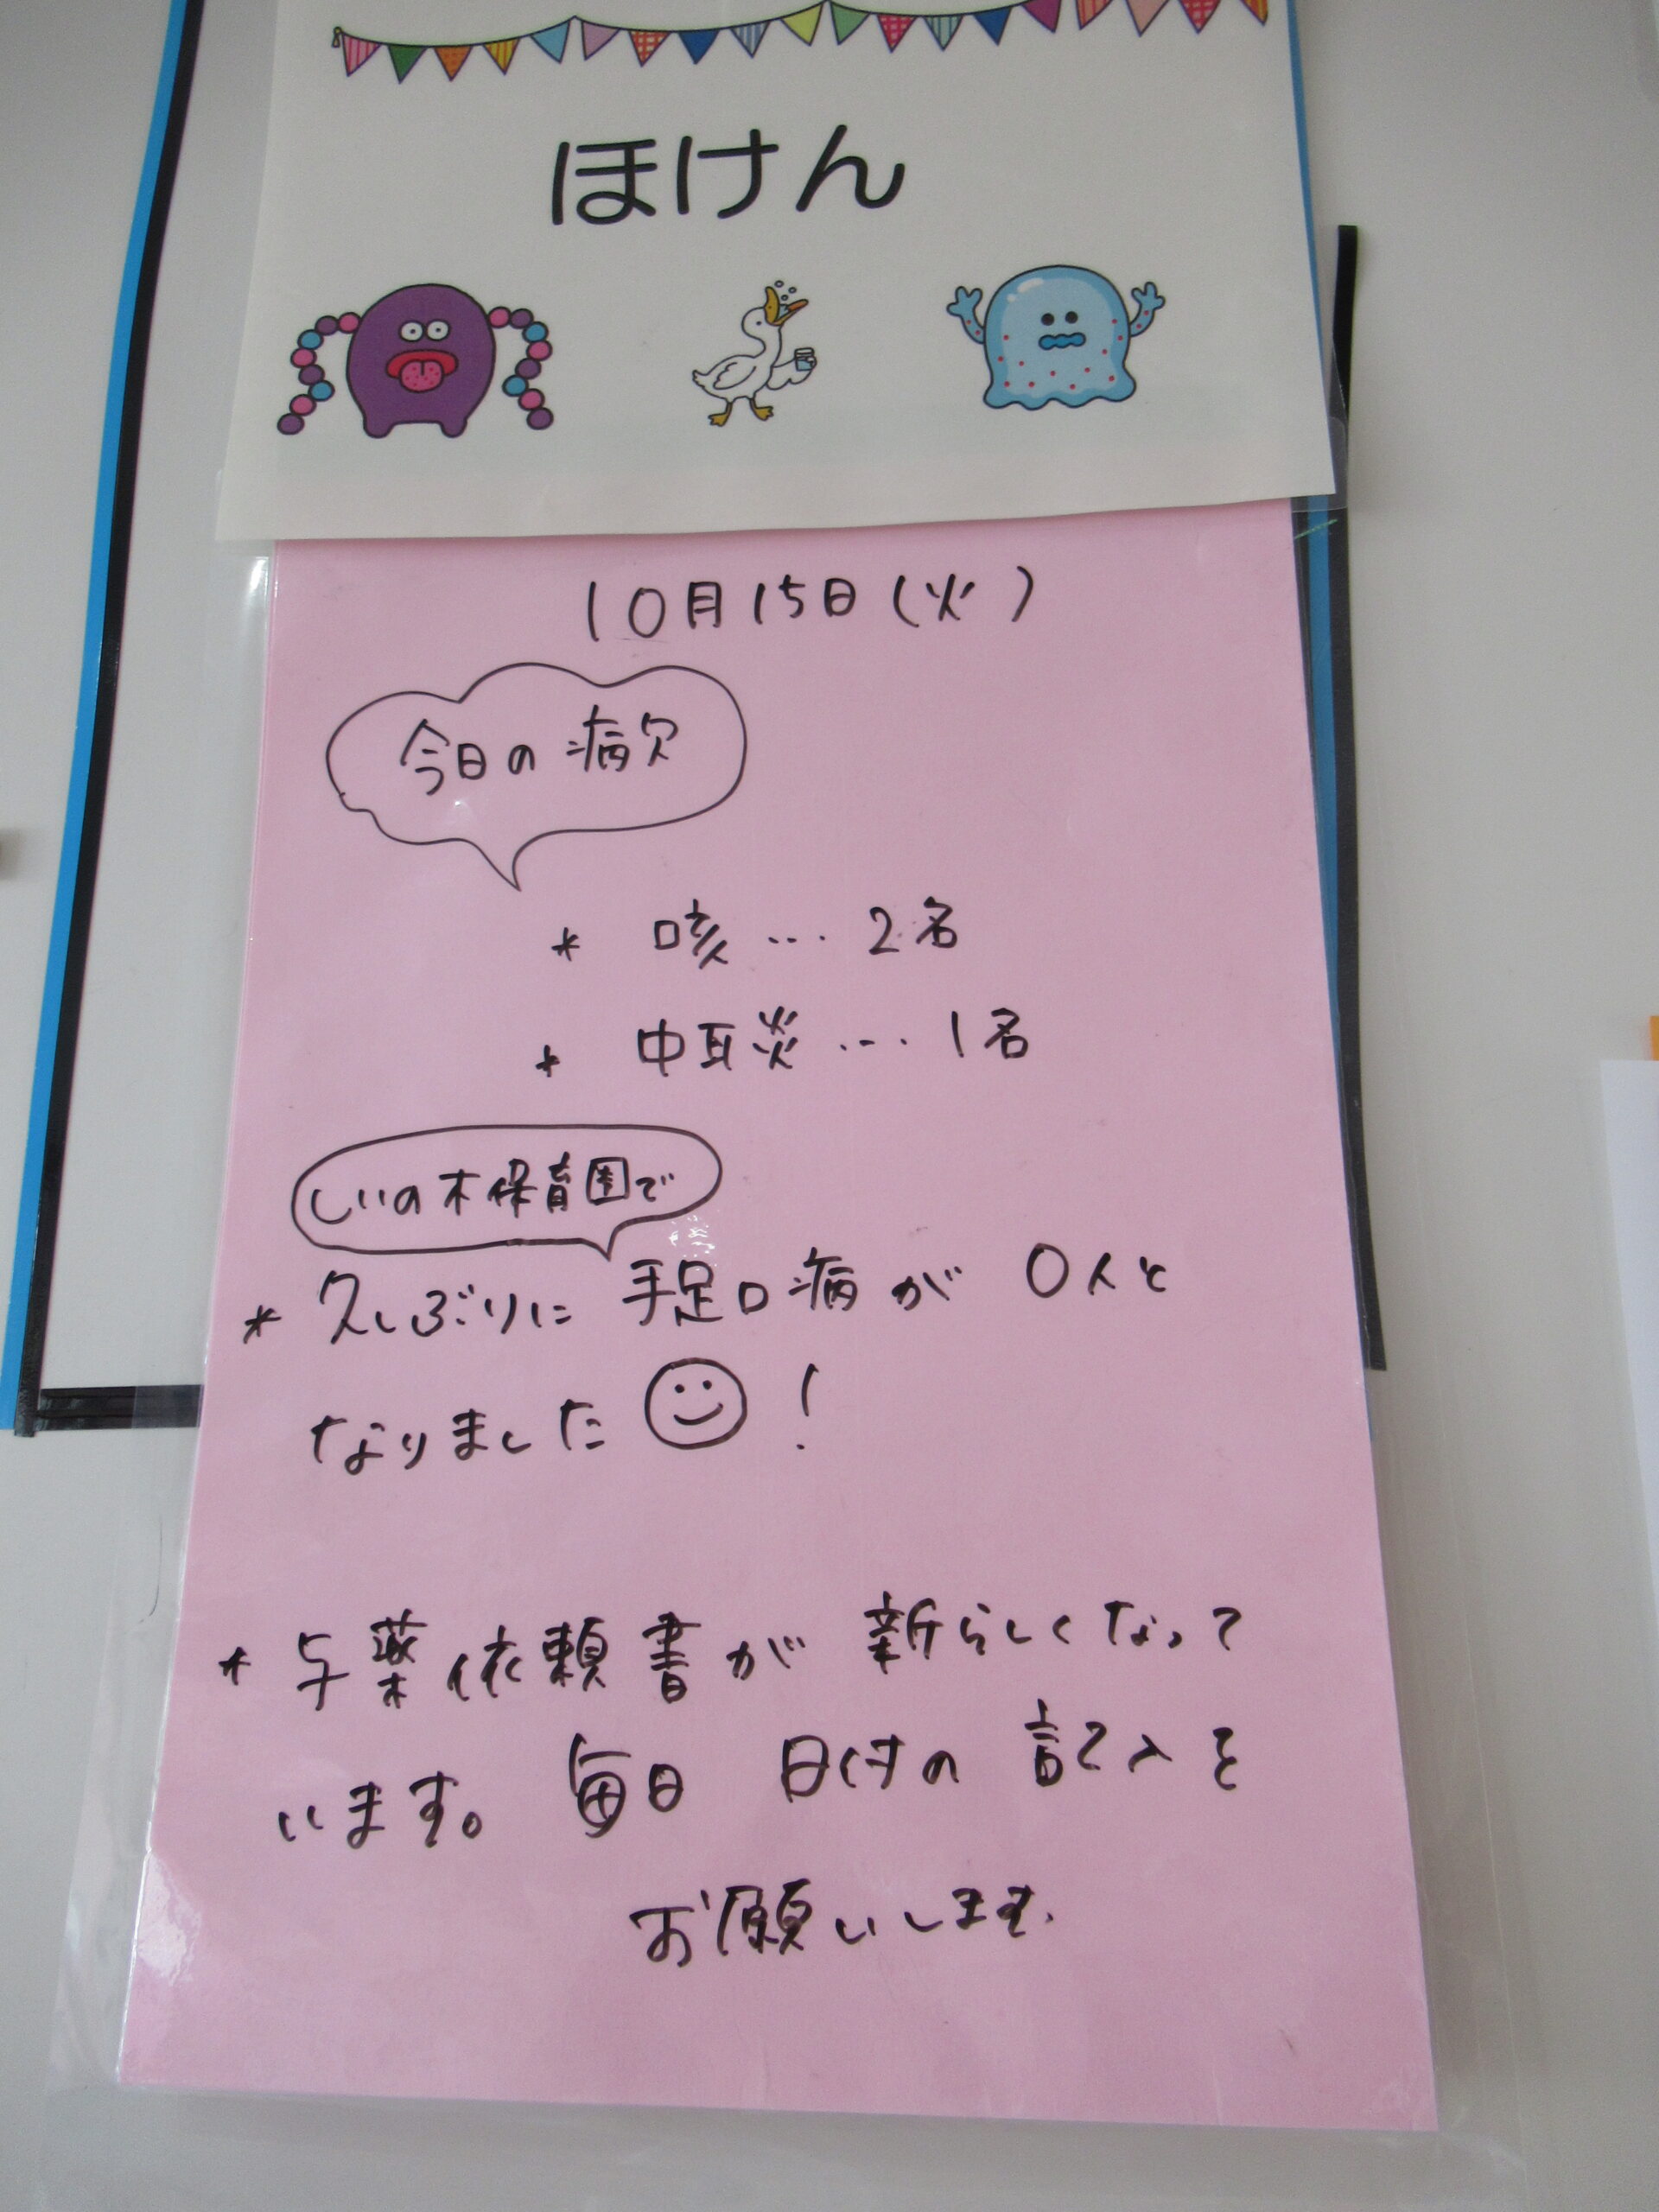 ほけん
10月15日(火)
今日の病欠
* 咳… 2名
* 中耳炎… 1名
しいの木保育園で
* 久しぶりに 手足口病が 0人と
なりました !
* 与薬依頼書が 新らしくなって
います。 毎日 日付の 記入を
お願いします.